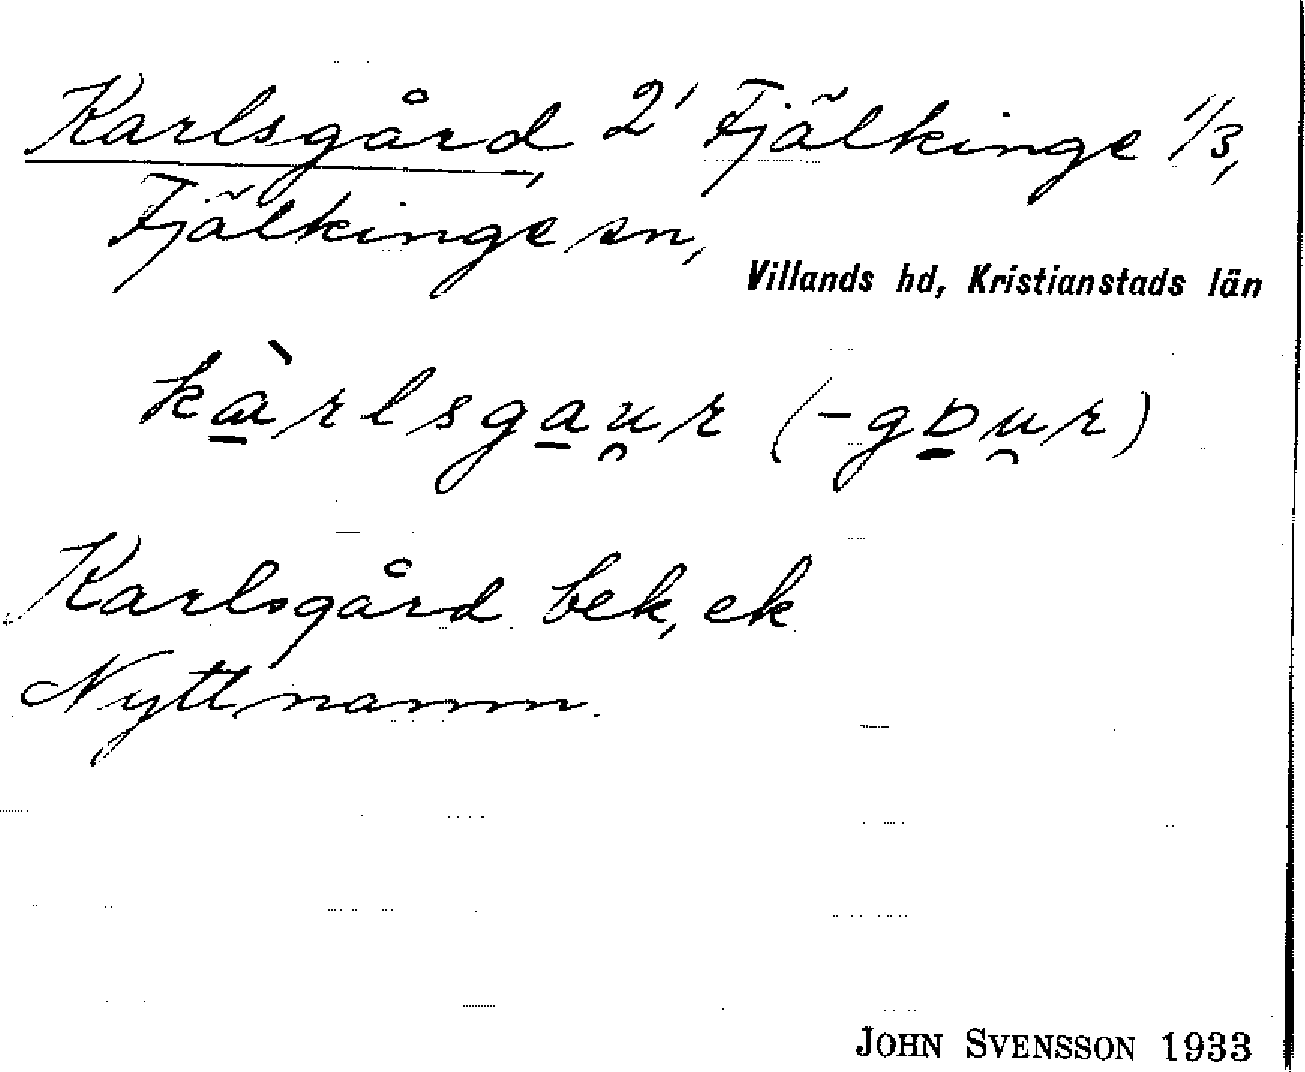 Karlsgård, 2' Fjälkinge 1/3,
Fjälkinge sn,
Villands hd, Kristianstads län
kàrlsgau̯r (-gɒu̯r)
Karlsgård bek, ek
Nytt namn.
JOHN SVENSSON 1933